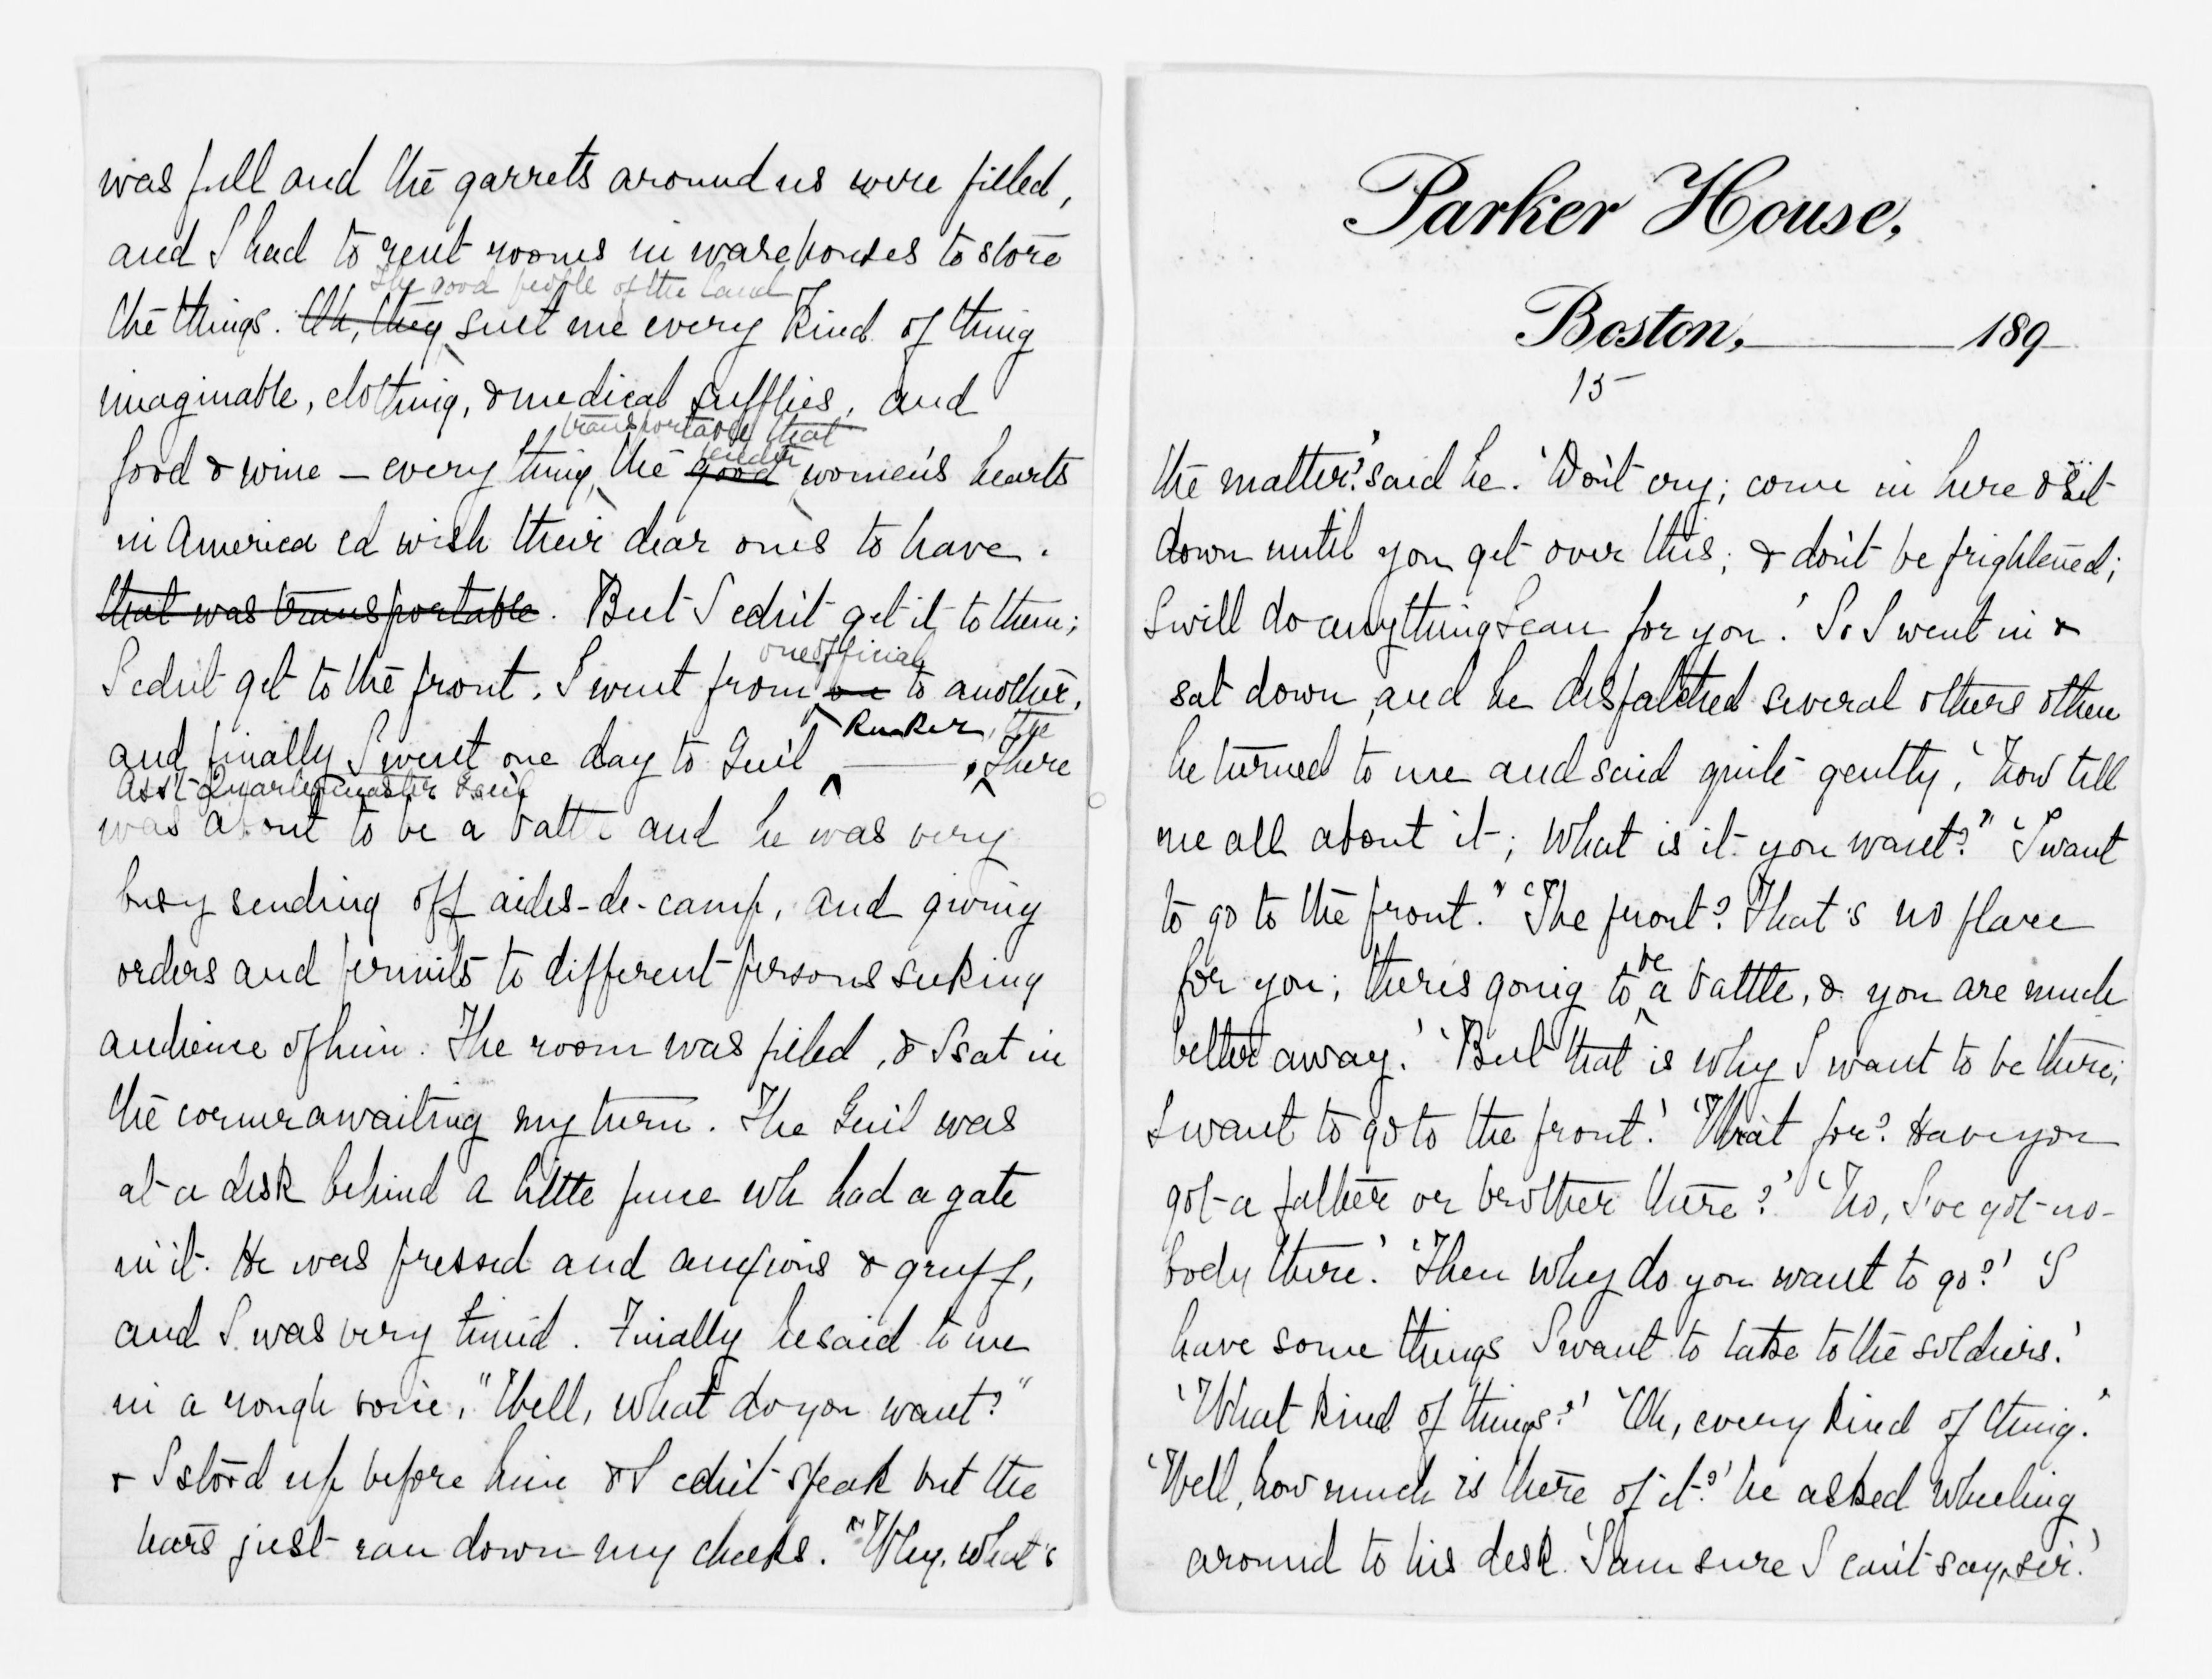 was full and the garrets around us were filled,
and I had to rent rooms in warehouses to store
The good people of the land
the things. Oh, they sent me every kind of thing
imaginable, clothing, & medical supplies, and
transportable that
tender
food & wine – every thing, the good women's hearts
in America cd wish their dear ones to have.
that was transportable. But I cdn't get it to them;
one official
I cdn't get to the front. I went from one to another,
Rucker, the
and finally I went one day to Gen'l ——. There
Ass't Quartermaster Gen'l
was about to be a battle and he was very
busy sending off aides-de-camp, and giving
orders and permits to different persons seeking
audience of him. The room was filled, & I sat in
the corner awaiting my turn. The Gen'l was
at a desk behind a little fence wh had a gate
in it. He was pressed and anxious & gruff,
and I was very timid. Finally he said to me
in a rough voice, "Well, what do you want?"
& I stood up before him & I cdn't speak but the
tears just ran down my cheeks. "Why, what's
Parker House,
Boston, 189
15
the matter?' said he. 'Don't cry; come in here & sit
down until you get over this; & don't be frightened;
I will do anything I can for you.' So I went in &
sat down, and he dispatched several others & then
he turned to me and said quite gently, 'Now tell
me all about it; What is it you want?" 'I want
to go to the front." 'The front? That's no place
be
for you; there is going to a battle, & you are much
better away.' 'But that is why I want to be there;
I want to go to the front.' 'What for? Have you
got a father or brother there?' 'No, I've got no-
body there.' 'Then why do you want to go?' 'I
have some things I want to take to the soldiers.'
'What kind of things?' 'Oh, every kind of thing.'
'Well, how much is there of it?' he asked wheeling
around to his desk. 'I am sure I can't say, sir.'